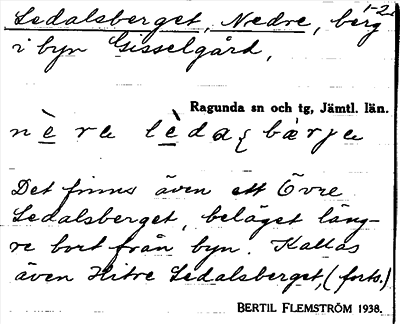 Ledalsberget, Nedre, berg 1-2.
i byn Gisselgård,
Ragunda sn och tg, Jämtl. län.
nè re lèda{ bàrje
Det finns även ett Övre
Ledalsberget, beläget läng-
re bort från byn. Kallas
även Hitre Ledalsberget, (forts.)
BERTIL FLEMSTRÖM 1938.